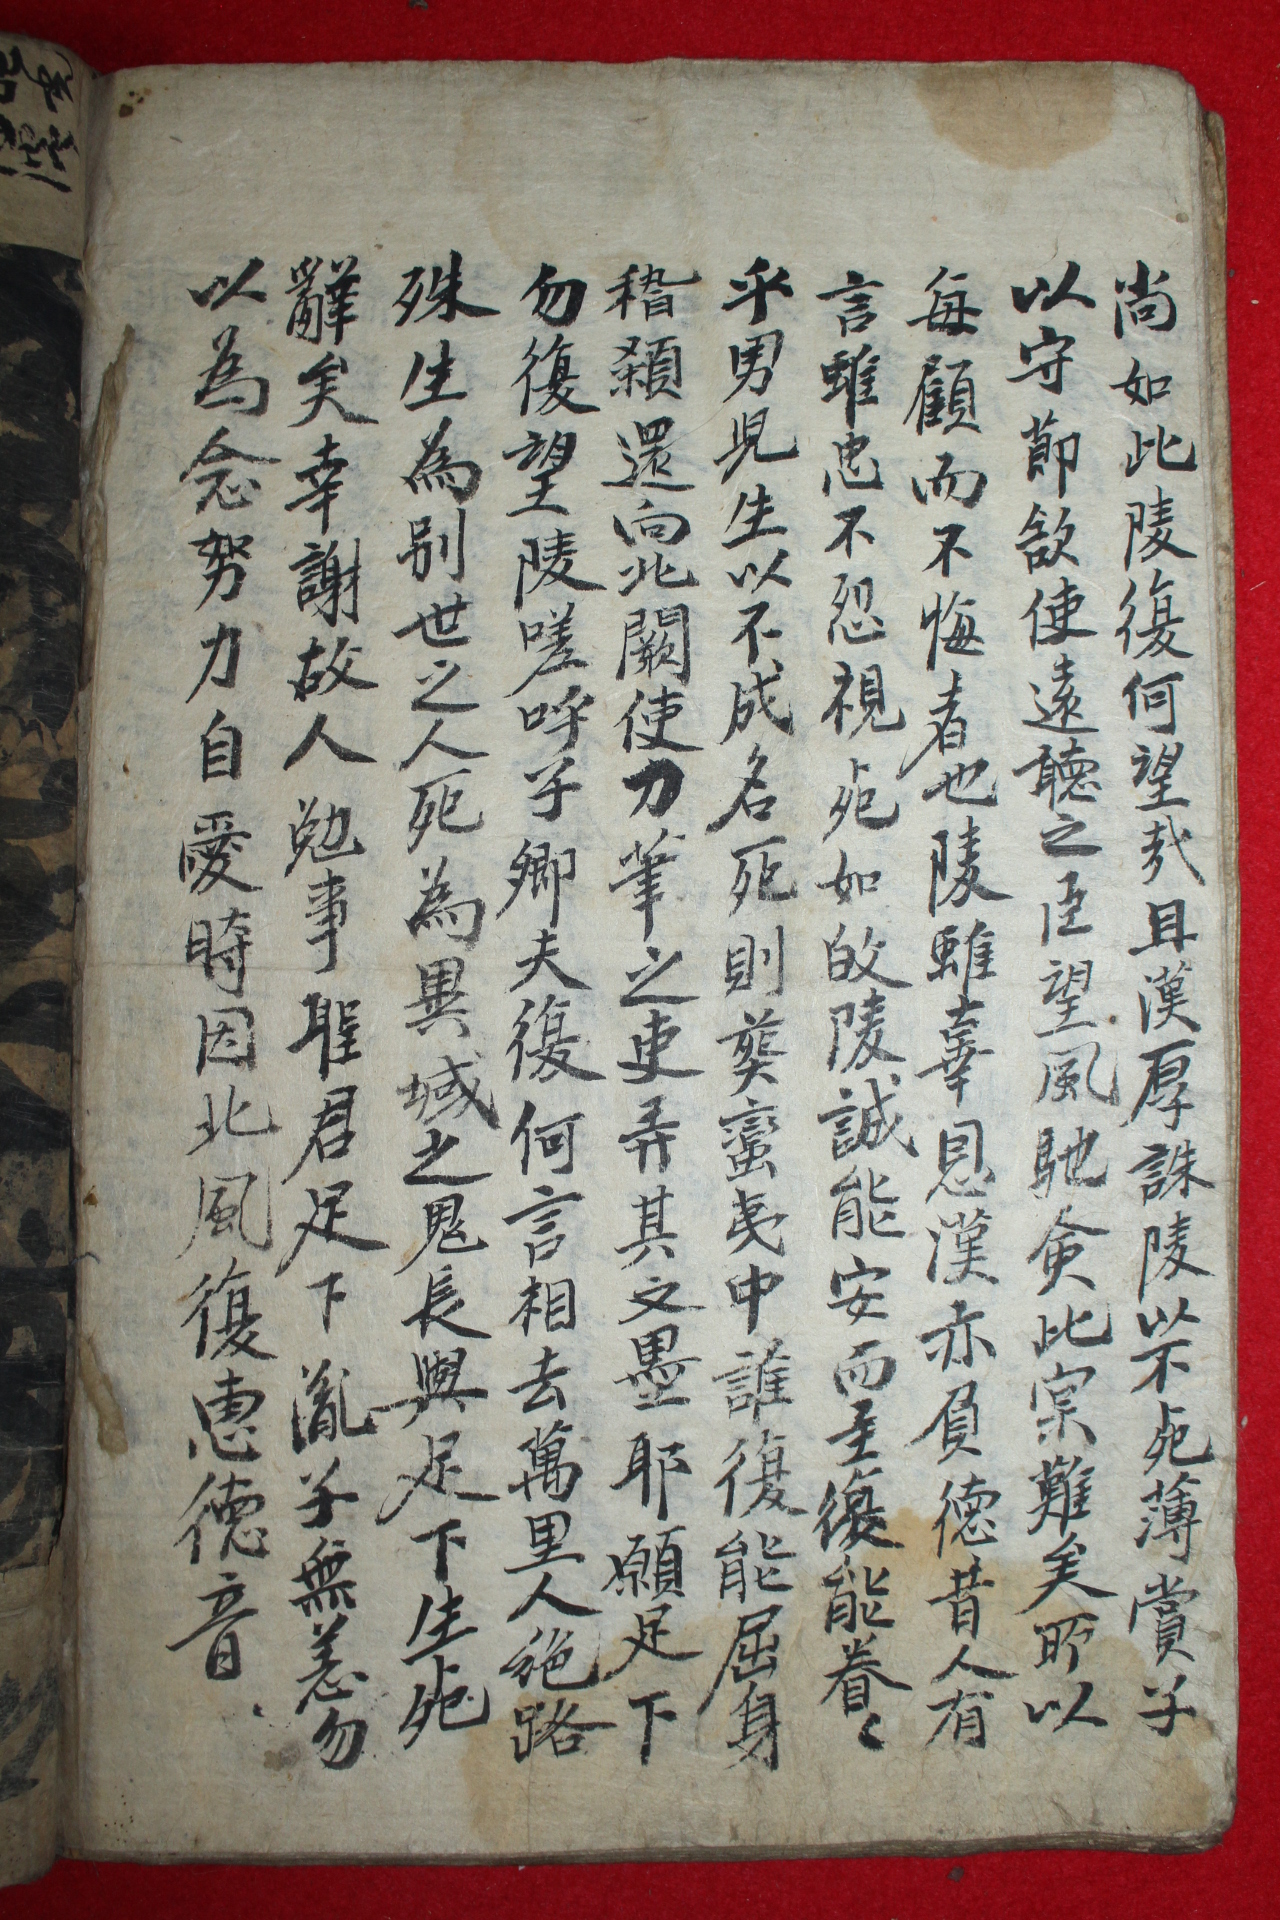 尚如此陵復何望哉且漢厚誅陵以不死薄賞子
以守節欲使遠聽之臣望風馳命此宗難矣所以
每顧而不悔者也陵雖辜恩漢亦負德昔人有
言雖忠不忍視死如故陵誠能安而主復能眷〻
乎男児生以不成名死則葬蠻夷中誰復能屈身
稽顙還向北闕使刀筆之吏弄其文墨耶願足下
勿復望陵嗟呼子卿夫復何言相去萬里人絶路
殊生為別世之人死為異域之鬼長與足下生死
辭矣幸謝故人勉事聖君足下胤子無恙勿
以為念努力自愛時因北風復惠德音